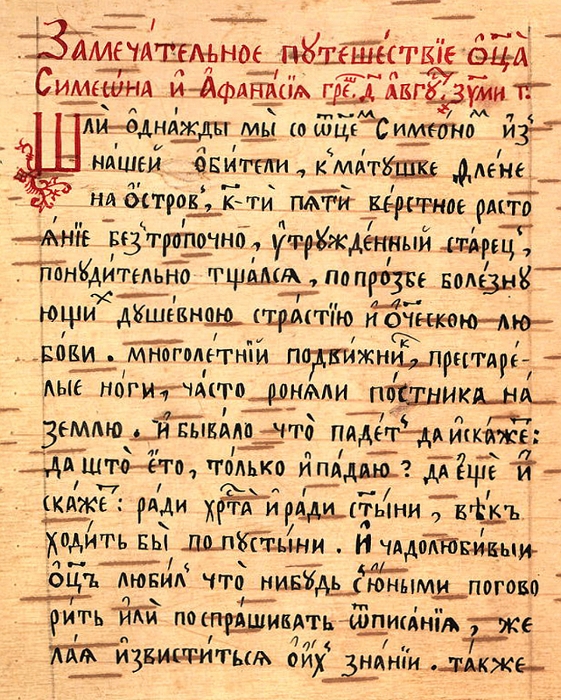 Замеча́тельное путеше́ствїе ѻ҆ц҃а̀
Симеѡ́на и҆ А҆фана́сїѧ гре҃. д҃ а҆вгу҃. зу҃ми т:
Шлѝ ѻ҆дна́жды мы̀ со ѻ҆тце́мъ Симео́номъ и҆з̾
на́шей ѻ҆би́тели, к̾ ма́тушке Дле́не
на ѻ҆́стров̾, к҃-тѝ пѧтѝ ве́рстное расто
ѧ́нїе без̾тро́почно, ᲂу҆тружде́нный ста́рец̾,
понуди́тельно тща́лсѧ, по про́збе боле́зну
ющих душе́вною стра́стїю и҆ ѻ҆́ч҃ескою лю
бо́ви. многоле́тнїй подви́жник, престаре́-
лые но́ги, ча́сто роня́ли по́стника на́
землю. и҆ быва́ло что̀ паде́т̾ да и҆ска́же҃:
да што̀ е҆́то, то́лько и҆ па́даю? да е҆щѐ и҆
ска́же҃: ра́ди хр҃та̀ и҆ ра́ди ст҃ы́ни, вѣ́къ
ходи́ть бы̀ по пусты́ни. И҆ чадолюби́выи
ѻ҆ц҃ъ люби́л̾ что̀ нибудь с̾ ю҆́ными погово
ри́ть и҆лѝ поспра́шивать ѿ писа́нїѧ, же
ла́ѧ и҆звисти́тьсѧ ѻ҆ и҆́х зна́нїи. та́кже